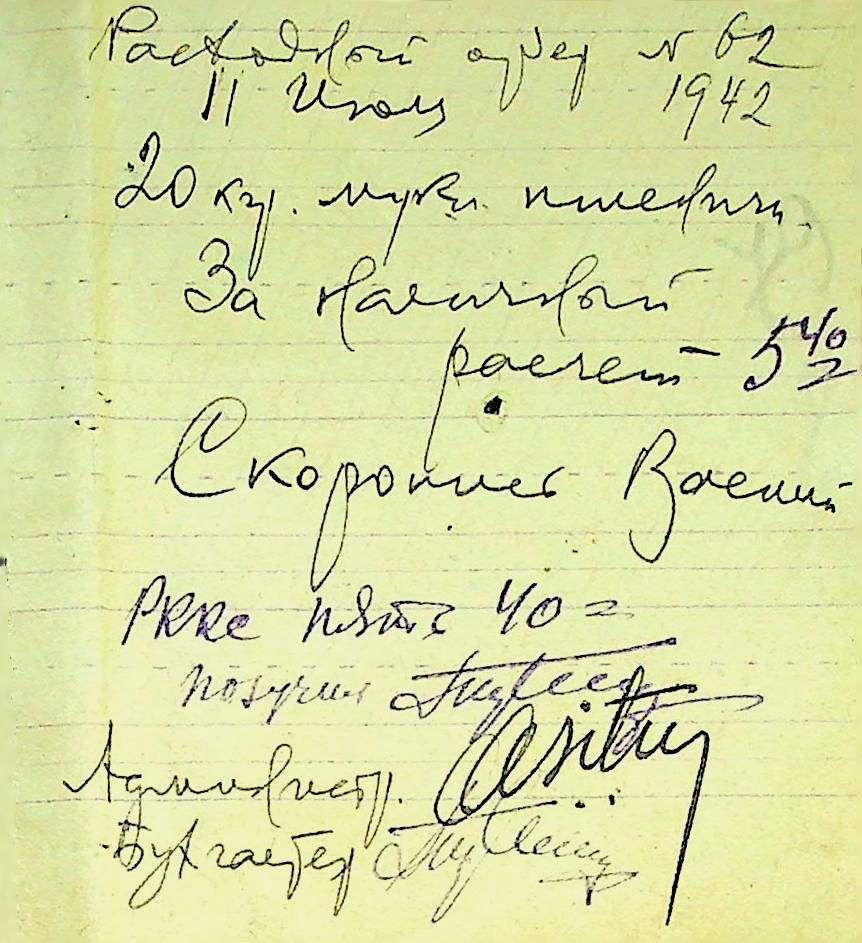 Расходный ордер N 62
11 Июля 1942
20 кгр. муки пшеничн.
За наличный
расчет 5 40
Скоропис Василий
РККс пять 40 =
получил
Администр.
Бухгалтер